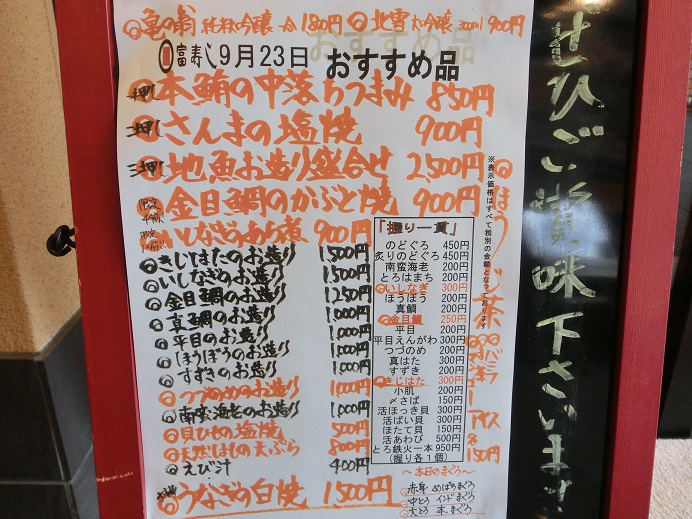 亀の翁 純米吟醸 一合 1,800円 北雪 大吟醸 300ml 900円
富寿し9月23日 おすすめ品
一押し 本鮪の中落ちつまみ 850円
二押し さんまの塩焼 900円
三押し 地魚お造り盛合せ 2,500円
金目鯛のかぶと焼 900円
いしなぎのあら煮 900円
きじはたのお造り 1,500円
いしなぎのお造り 1,500円
金目鯛のお造り 1,250円
真鯛のお造り 1,000円
平目のお造り 1,000円
ほうぼうのお造り 1,000円
すずきのお造り 1,000円
つづのめのお造り 1,000円
南蛮海老のお造り 1,000円
貝ひもの塩焼 500円
天然はもの天ぷら 800円
えび汁 400円
うなぎの白焼 1,500円
『握り一貫』
のどぐろ 450円
炙りのどぐろ 450円
南蛮海老 200円
とろはまち 200円
いしなぎ 300円
ほうぼう 200円
真鯛 200円
金目鯛 250円
平目 200円
平目えんがわ 300円
つづのめ 200円
真はた 300円
すずき 200円
きじはた 300円
小肌 200円
〆さば 150円
活ほっき貝 300円
活ばい貝 300円
ほたて貝 150円
活あわび 500円
とろ鉄火一本 950円
(握り各1個)
～本日のまぐろ～
赤身 めばちまぐろ
中とろ インドまぐろ
大とろ 本まぐろ
※表示価格はすべて税別の金額となっております
ほうじ茶
アイス
150円
ぜひご賞味下さいます